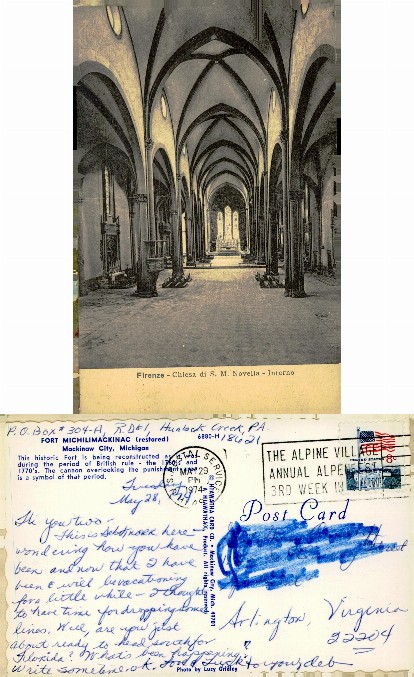 Firenze - Chiesa di S. M. Novella - Interno
P.O. Box # 304-A, R.D.#1, Hunlock Creek, P.A.
18621
FORT MICHILIMACKINAC (restored)
Mackinaw City, Michigan
6880-H
This historic Fort is being reconstructed as it was
during the period of British rule - the 1760's and
1770's. The cannon overlooking the punishment
is a symbol of that period.
U.S. POSTAL SERVICE
MAY 29
PM
1974
THE ALPINE VILLAGE
ANNUAL ALPENFEST
3RD WEEK IN
UNITED STATES
8c
Post Card
May 28,
Hi you two-
This is here-
wondering how you have
been and now that I have
been & will be vacationing
for a little while - I thought
to have time for dropping some
lines. Well, are you just
about ready to head south for
Florida? What's been happening?
Write sometime. O.K. Good Luck to you, deb
Arlington, Virginia
22204
Photo by Lucy Gridley
HIAWATHA CARD CO. • Mackinaw City, Mich. 49701
A HIAWATHAKK Product. All rights reserved.